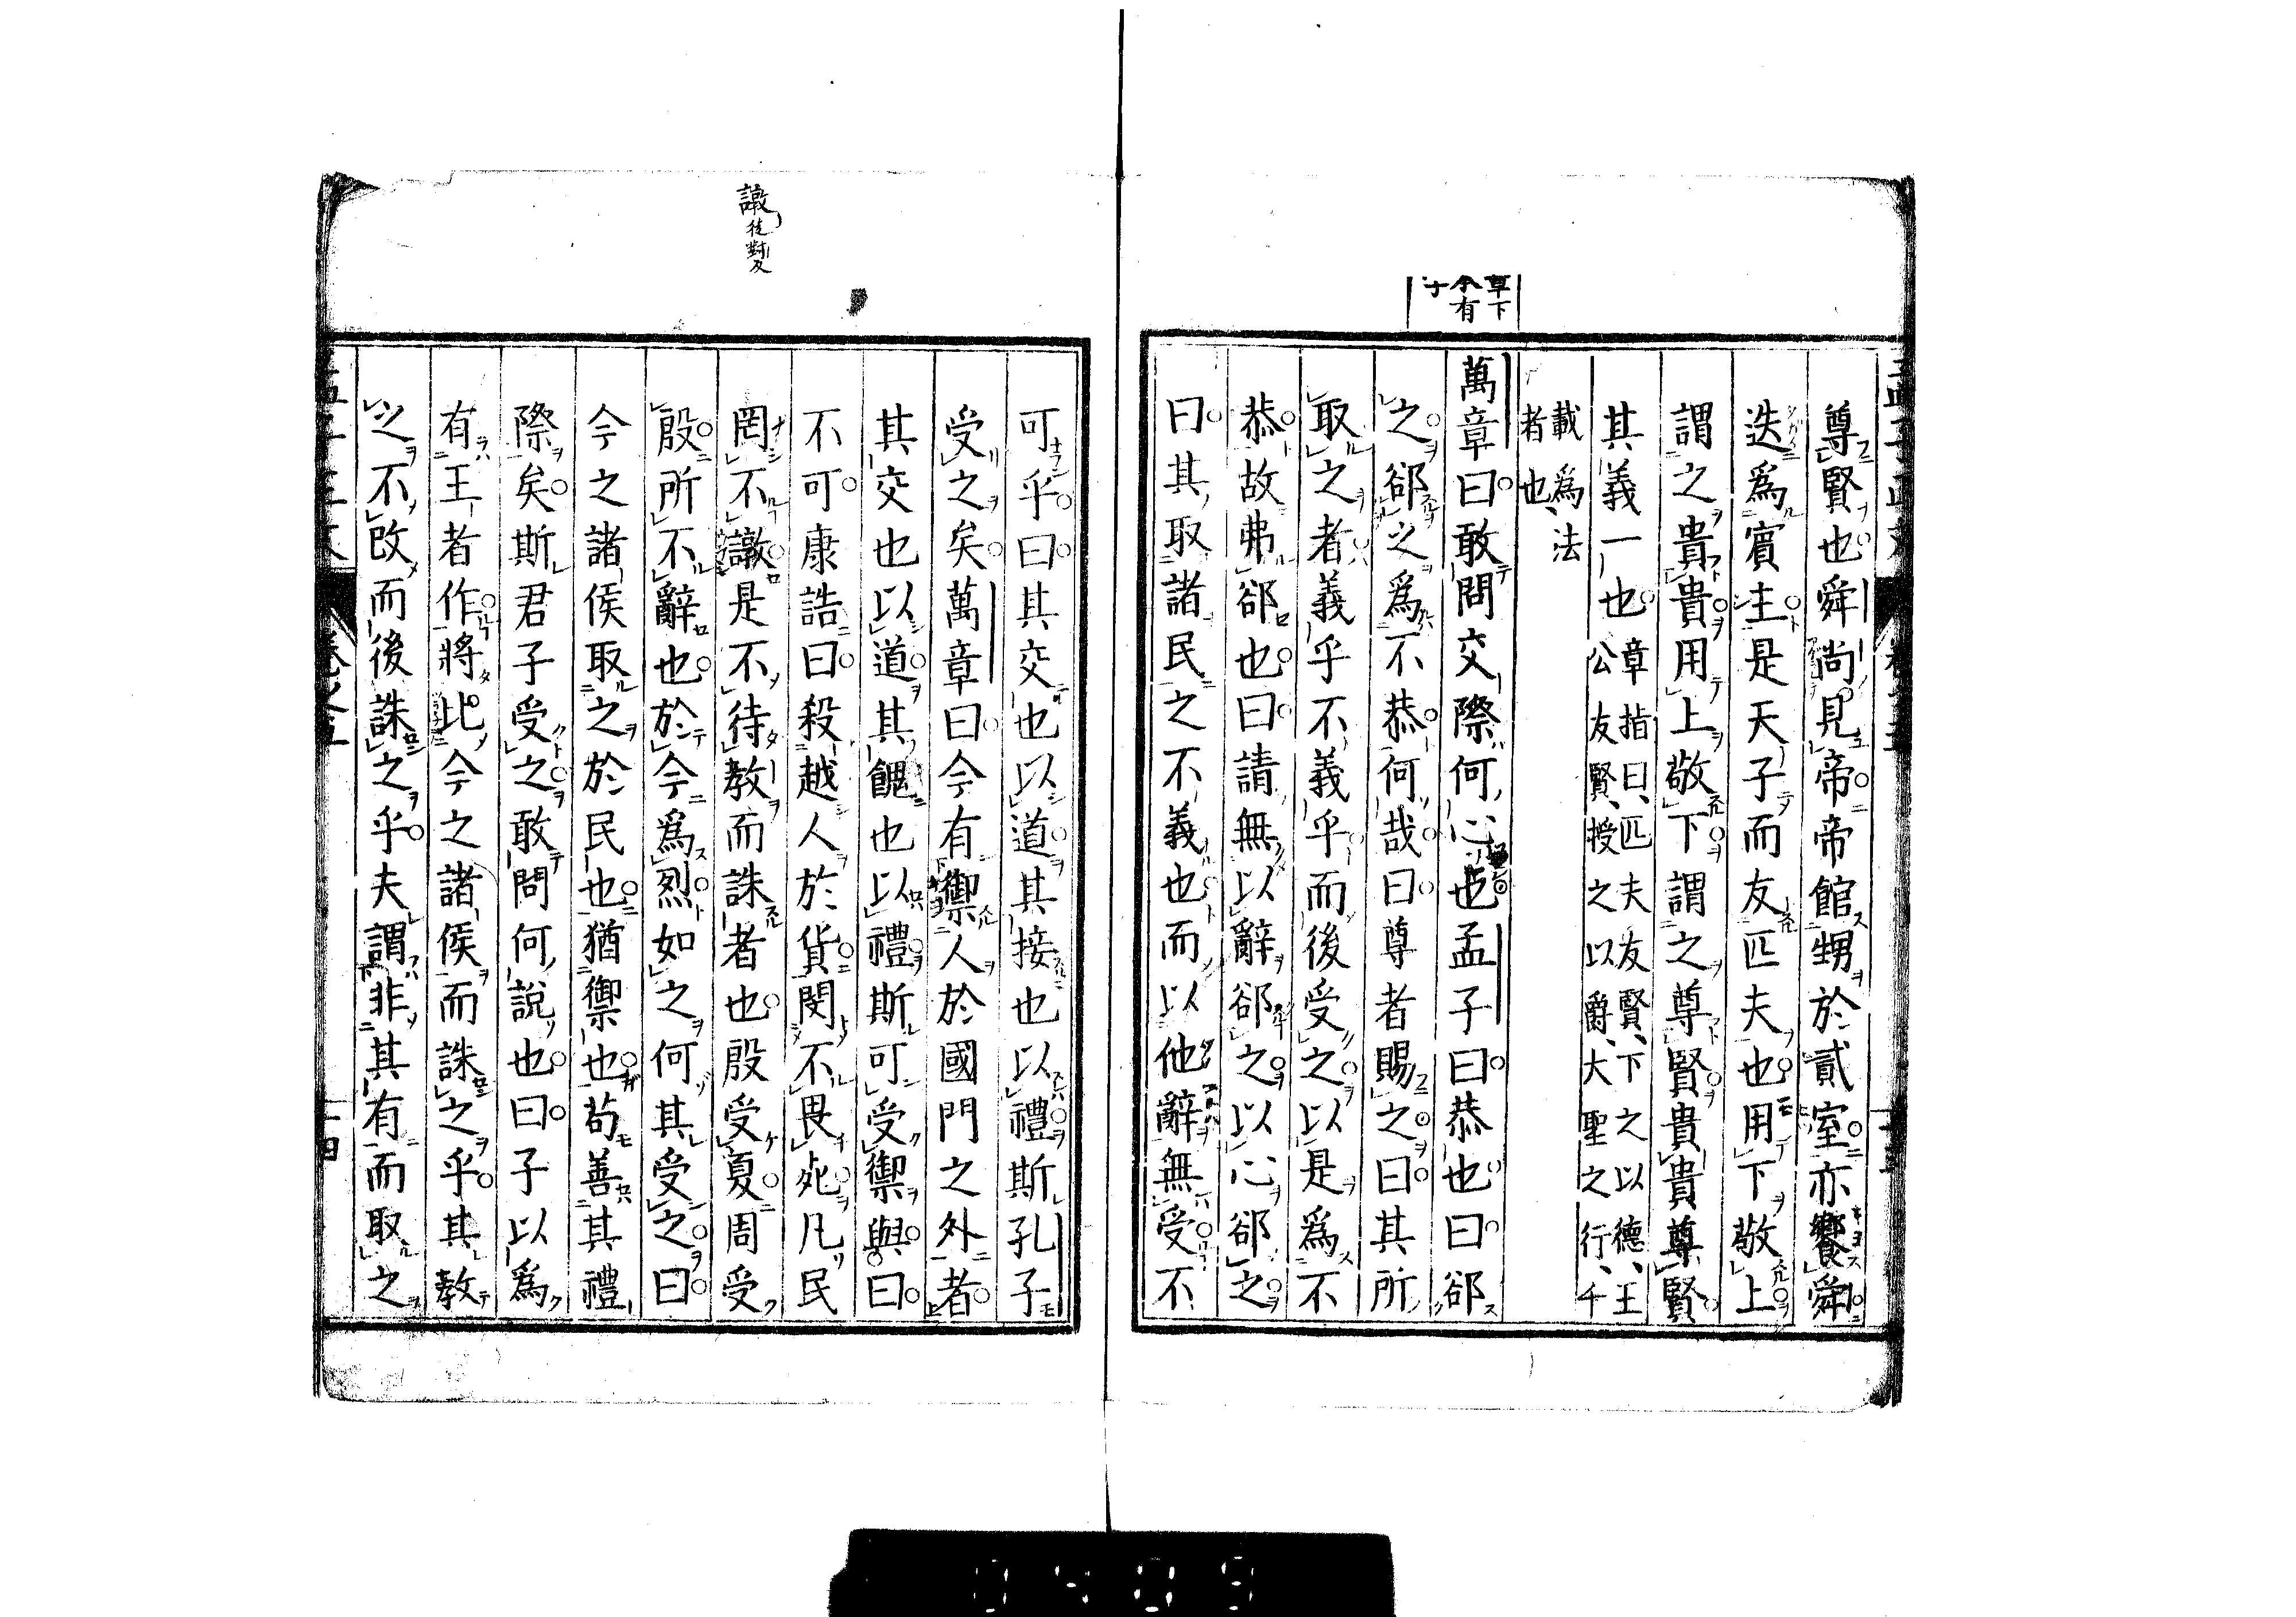 章下
本有
子
尊賢也舜尚見帝帝館甥於貳室亦饗舜
迭爲賓主是天子而友匹夫也用下敬上
謂之貴貴用上敬下謂之尊賢貴貴尊賢
其義一也章指曰、匹夫友賢、下之以德、王
公友賢、授之以爵、大聖之行、千
載爲法
者也、
萬章曰敢問交際何心也孟子曰恭也曰郤
之郤之爲不恭何哉曰尊者賜之曰其所
取之者義乎不義乎而後受之以是爲不
恭故弗郤也曰請無以辭郤之以心郤之
曰其取諸民之不義也而以他辭無受不
譈
徒對反
可乎曰其交也以道其接也以禮斯孔子
受之矣萬章曰今有禦人於國門之外者
其交也以道其餽也以禮斯可受禦與曰
不可康誥曰殺越人於貨閔不畏死凡民
罔不譈是不待教而誅者也殷受夏周受
殷所不辭也於今爲烈如之何其受之曰
今之諸侯取之於民也猶禦也苟善其禮
際矣斯君子受之敢問何說也曰子以爲
有王者作將比今之諸侯而誅之乎其教
之不改而後誅之乎夫謂非其有而取之